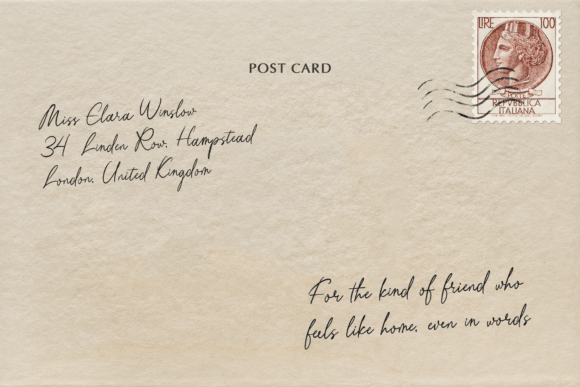 LIRE 100
POST CARD
REPVBBLICA
ITALIANA
Miss Clara Winslow
34 Linden Row, Hampstead
London, United Kingdom
For the kind of friend who
feels like home, even in words